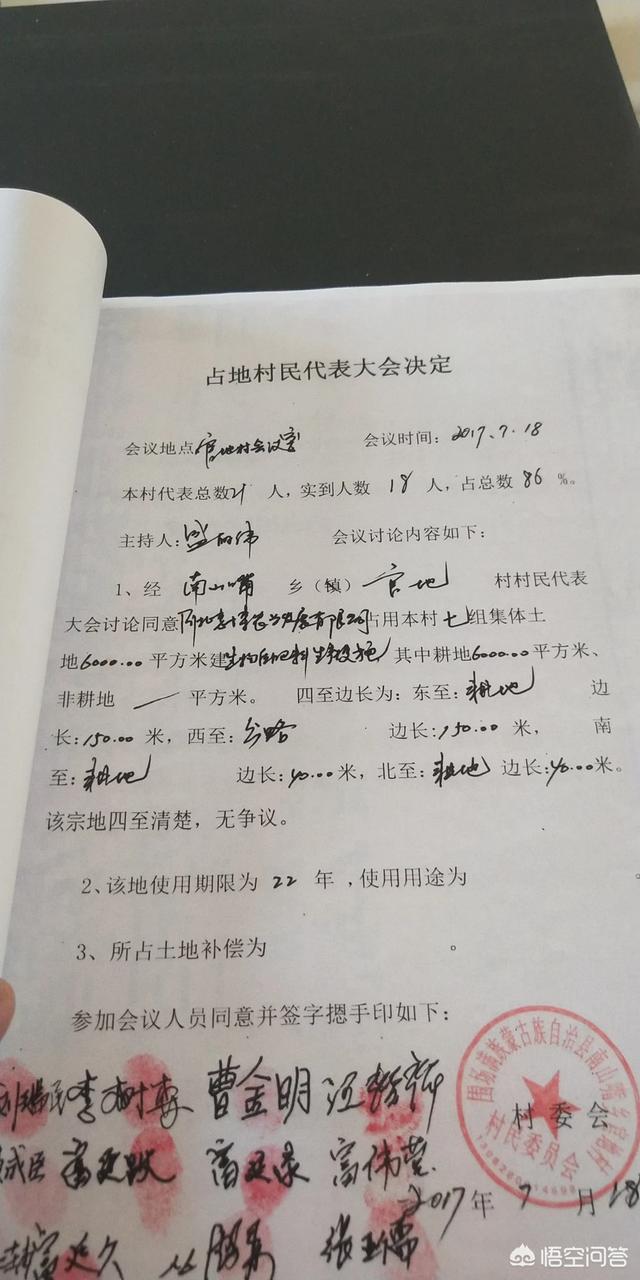 占地村民代表大会决定
会议地点 官地村会议室 会议时间：2017、7、18
本村代表总数21人，实到人数 18 人，占总数 86 %。
主持人： 会议讨论内容如下：
1、经 南山嘴 乡（镇） 官地 村村民代表
大会讨论同意 有限公司占用本村七组集体土
地6000.00平方米建生物 肥料生产设施 其中耕地6000.00平方米、
非耕地 — 平方米。 四至边长为：东至：耕地 边
长：150.00 米，西至：公路 边长：150.00 米， 南
至：耕地 边长：40.00米，北至：耕地 边长：40.00米。
该宗地四至清楚，无争议。
2、该地使用期限为 22 年，使用用途为 。
3、所占土地补偿为 。
参加会议人员同意并签字摁手印如下：
李树森 曹金明
富廷跃 富廷录 富伟莹
富延久
围场满族蒙古族自治县南山嘴乡官地村
村民委员会
村委会
2017年 7 月 18
悟空问答